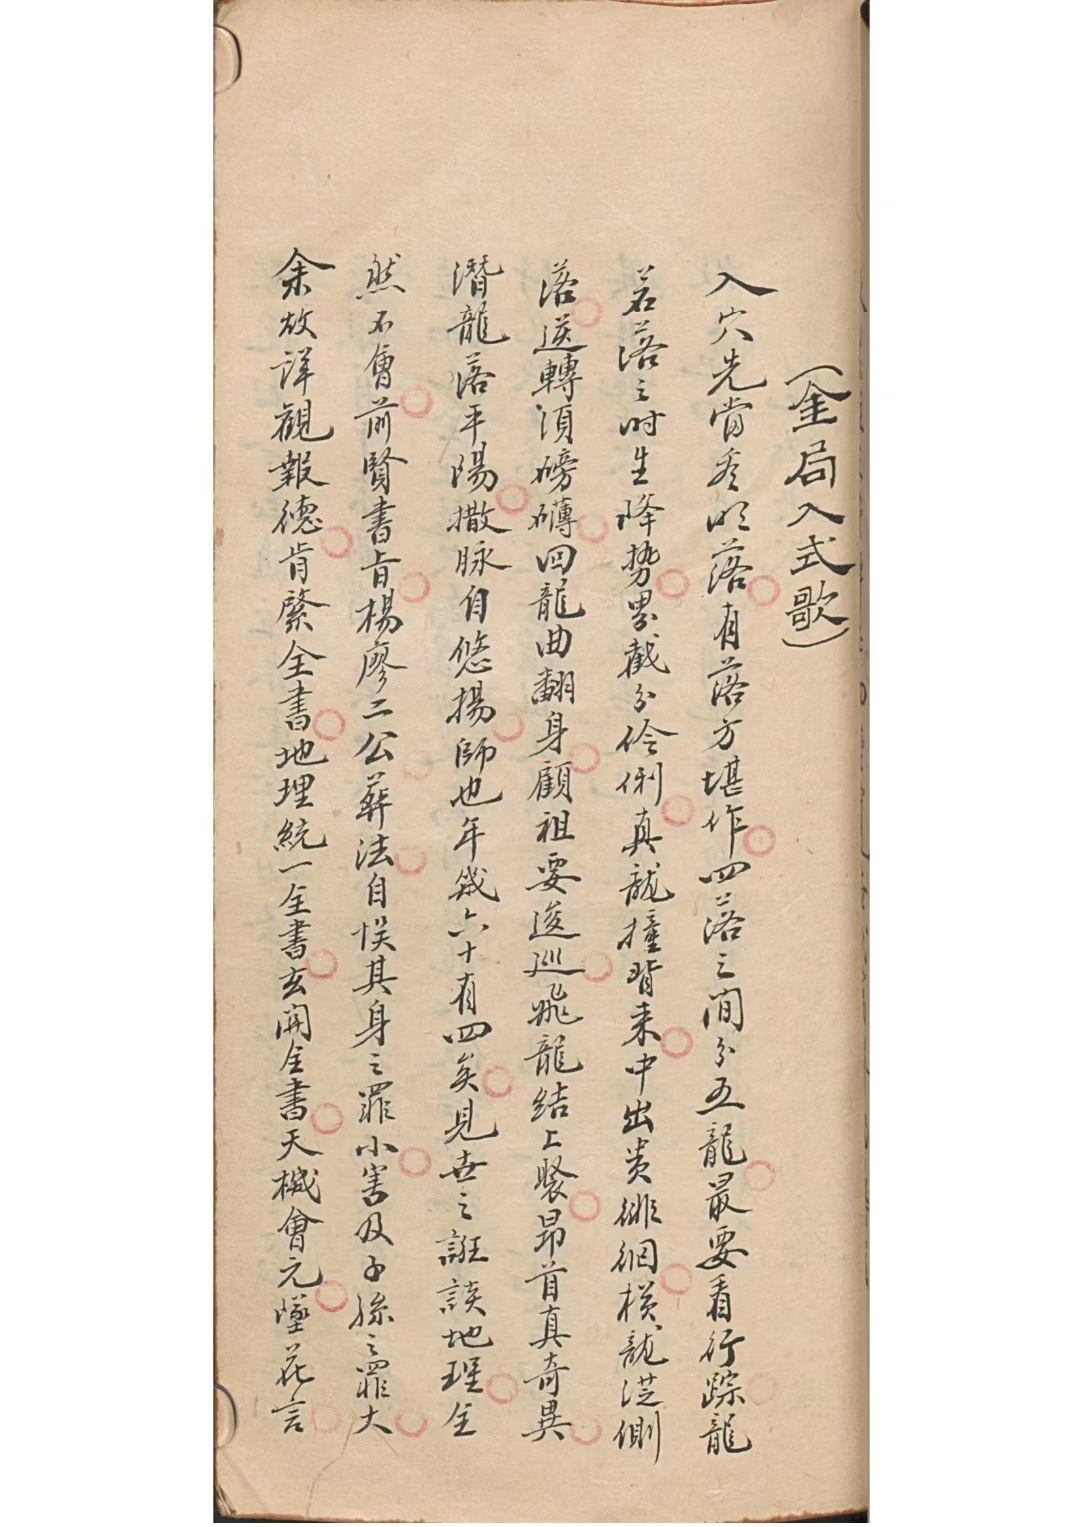 （金局入式歌）
入穴先當看明落有落方堪作四落之間分五龍最要看行踪龍
若落之時生降勢界截分伶俐真龍撞背来中出贵徘徊横龍從側
落送轉須磅礴回龍曲翻身顧祖要逡巡飛龍結上聚昂首真奇異
潛龍落平陽撒脉自悠揚師也年幾六十有四矣見世之誑談地理全
然不會前賢書旨楊廖二公葬法自悮其身之罪小害及子孫之罪大
余故詳觀報德肯綮全書地理統一全書玄開全書天機會元墜花言